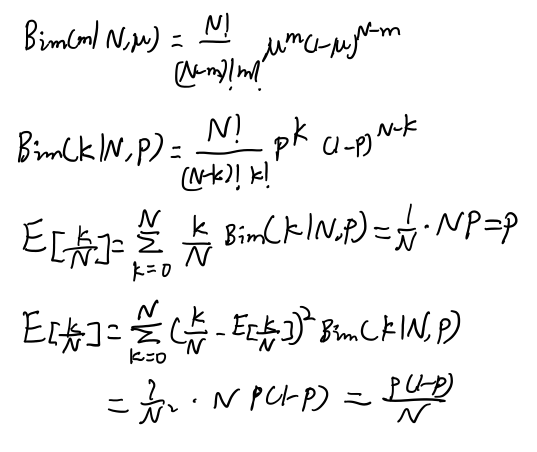 Bin(m|N,μ) = N!/((N-m)!m!) μ^m(1-μ)^(N-m)
Bin(k|N,p) = N!/((N-k)! k!) p^k (1-p)^(N-k)
E[k/N] = Σ_{k=0}^{N} k/N Bin(k|N,p) = 1/N · NP = p
E[k/N] = Σ_{k=0}^{N} (k/N - E[k/N])^2 Bin(k|N,p)
= 1/N^2 · N p(1-p) = p(1-p)/N